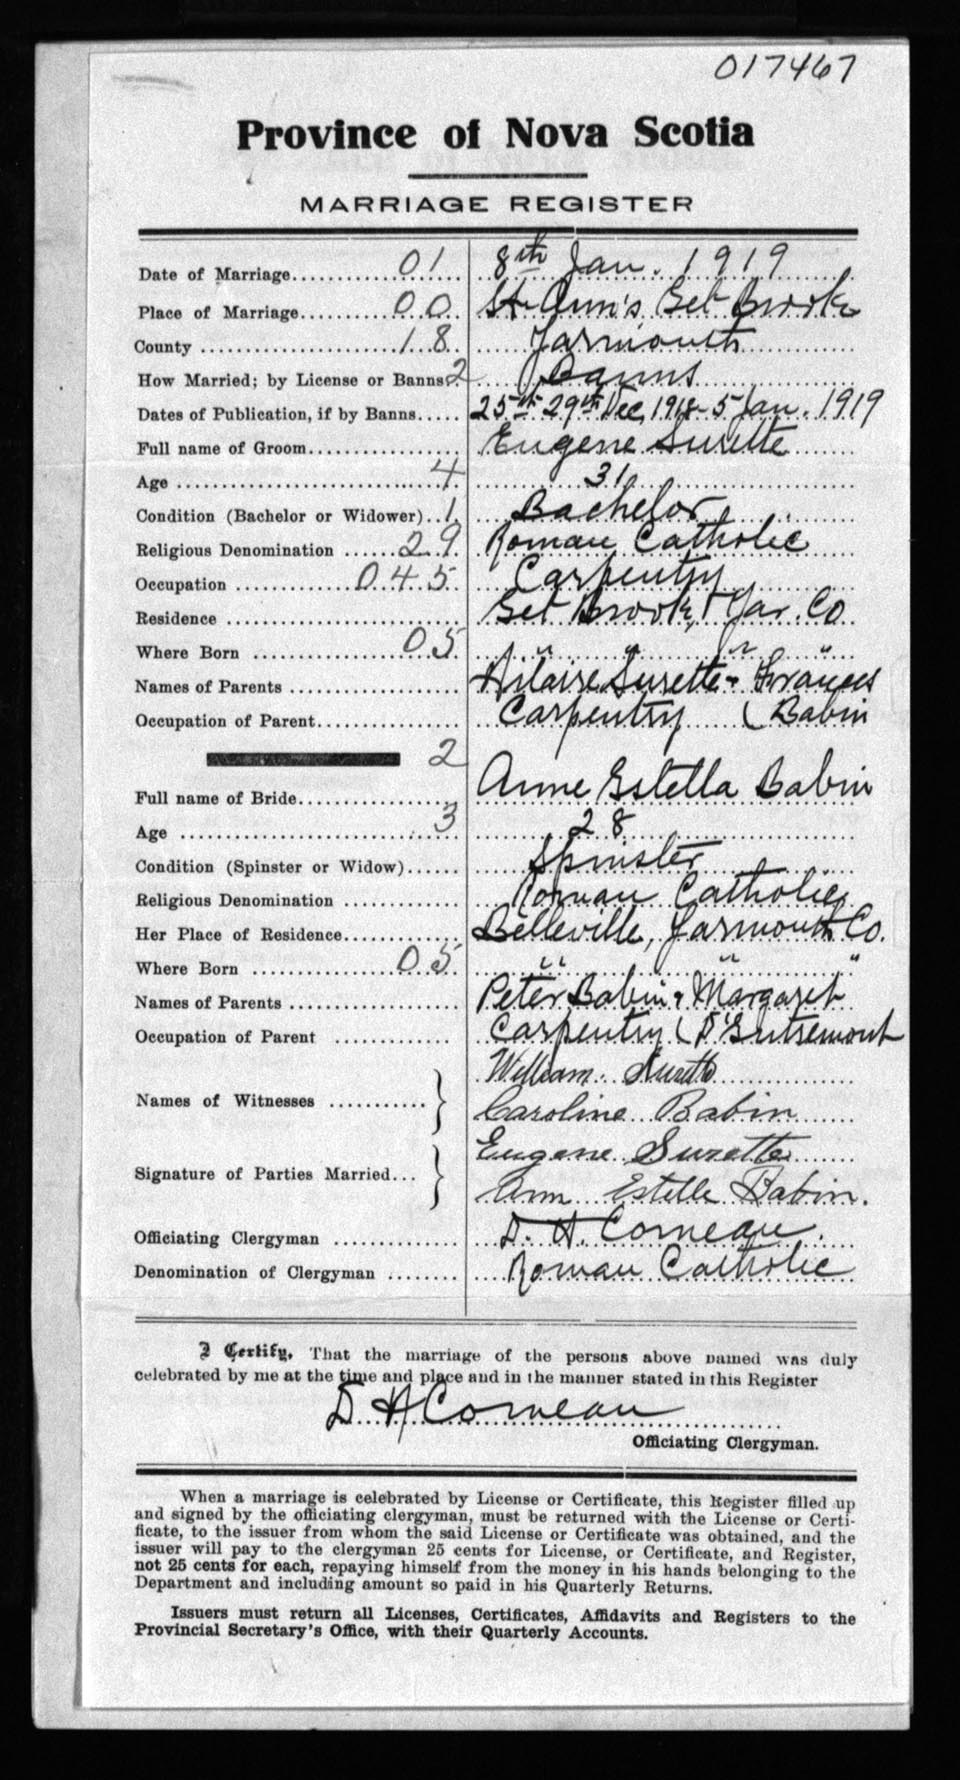 017467
Province of Nova Scotia
MARRIAGE REGISTER
Date of Marriage............01... 8th Jan. 1919
Place of Marriage...........00.. St Ann's, Eel Brook
County ....................18.. Yarmouth
How Married; by License or Banns 2 Banns
Dates of Publication, if by Banns..... 25th 29th Dec, 1918 - 5 Jan. 1919
Full name of Groom................ Eugene Surette
Age ..........................4 31
Condition (Bachelor or Widower)..1. Bachelor
Religious Denomination ......29. Roman Catholic
Occupation ............045. Carpentry
Residence .......................... Eel Brook, Yar. Co
Where Born ................05. " " " "
Names of Parents ................. Hilaire Surette + Frances
Occupation of Parent.............. Carpentry ( Babin
2
Full name of Bride................ Anne Estella Babin
Age ..........................3 28
Condition (Spinster or Widow)...... Spinster
Religious Denomination ............ Roman Catholic
Her Place of Residence............. Belleville, Yarmouth Co.
Where Born ..............05.. " " "
Names of Parents ................. Peter Babin + Margaret
Occupation of Parent ............ Carpentry (
William Surette
Names of Witnesses ........... }
Caroline Babin
Eugene Surette
Signature of Parties Married... }
Ann Estelle Babin.
Officiating Clergyman .............. D. H. Comeau.
Denomination of Clergyman ........ Roman Catholic
I Certify, That the marriage of the persons above named was duly
celebrated by me at the time and place and in the manner stated in this Register
D H Comeau
Officiating Clergyman.
When a marriage is celebrated by License or Certificate, this Register filled up
and signed by the officiating clergyman, must be returned with the License or Certi-
ficate, to the issuer from whom the said License or Certificate was obtained, and the
issuer will pay to the clergyman 25 cents for License, or Certificate, and Register,
not 25 cents for each, repaying himself from the money in his hands belonging to the
Department and including amount so paid in his Quarterly Returns.
Issuers must return all Licenses, Certificates, Affidavits and Registers to the
Provincial Secretary's Office, with their Quarterly Accounts.